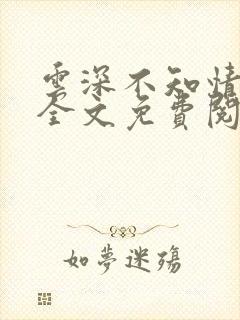 雲深不知情
全文免費閱
如夢迷殤